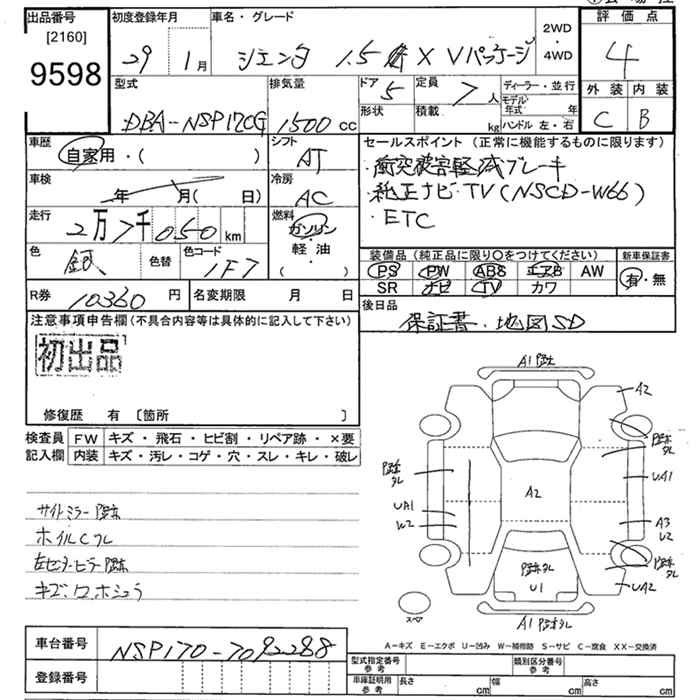 出品番号
[2160]
9598
初度登録年月
29 1月
車名・グレード
シエンタ 1.5 X Vパッケージ
2WD
・
4WD
評価点
4
外装 内装
C B
型式
DBA-NSP170G
排気量
1500 cc
ドア
5
定員
7 人
形状
積載
kg
ディーラー・並行
モデル年式 年
ハンドル 左・右
車歴
自家用・( )
シフト
AT
車検
年 月( 日)
冷房
AC
走行
2万7千050 km
燃料
ガソリン
・
軽・油
( )
色
銀
色替
色コード
1F7
R券
10360 円
名変期限 月 日
セールスポイント(正常に機能するものに限ります)
・衝突被害軽減ブレーキ
・純正ナビ・TV(NSCD-W66)
・ETC
装備品(純正品に限り○をつけてください)
PS PW ABS エアB AW
SR ナビ TV カワ
新車保証書
有・無
後日品
保証書・地図SD
注意事項申告欄(不具合内容等は具体的に記入して下さい)
初出品
修復歴 有 〔箇所 〕
検査員
記入欄
FW キズ・飛石・ヒビ割・リペア跡・×要
内装 キズ・汚レ・コゲ・穴・スレ・キレ・破レ
サイドミラー
ホイルCフレ
A1
A2
UA1
UA1
W2
A2
A3
U2
U1
UA2
A1
スペア
A-キズ E-エクボ U-凹み W-補修跡 S-サビ C-腐食 XX-交換済
車台番号
NSP170-7092288
登録番号
型式指定番号
参考
類別区分番号
参考
車庫証明用
参考
長さ cm
幅 cm
高さ cm